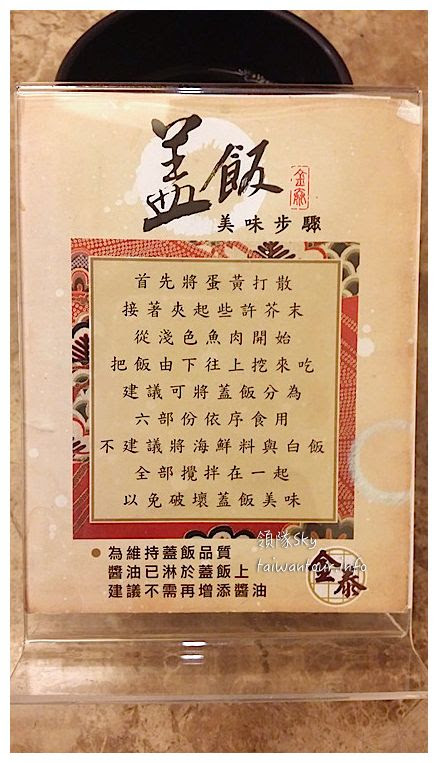 蓋飯
美味步驟
首先將蛋黃打散
接著夾起些許芥末
從淺色魚肉開始
把飯由下往上挖來吃
建議可將蓋飯分為
六部份依序食用
不建議將海鮮料與白飯
全部攪拌在一起
以免破壞蓋飯美味
●為維持蓋飯品質
醬油已淋於蓋飯上
建議不需再增添醬油
領隊Sky
taiwantour.info
金泰